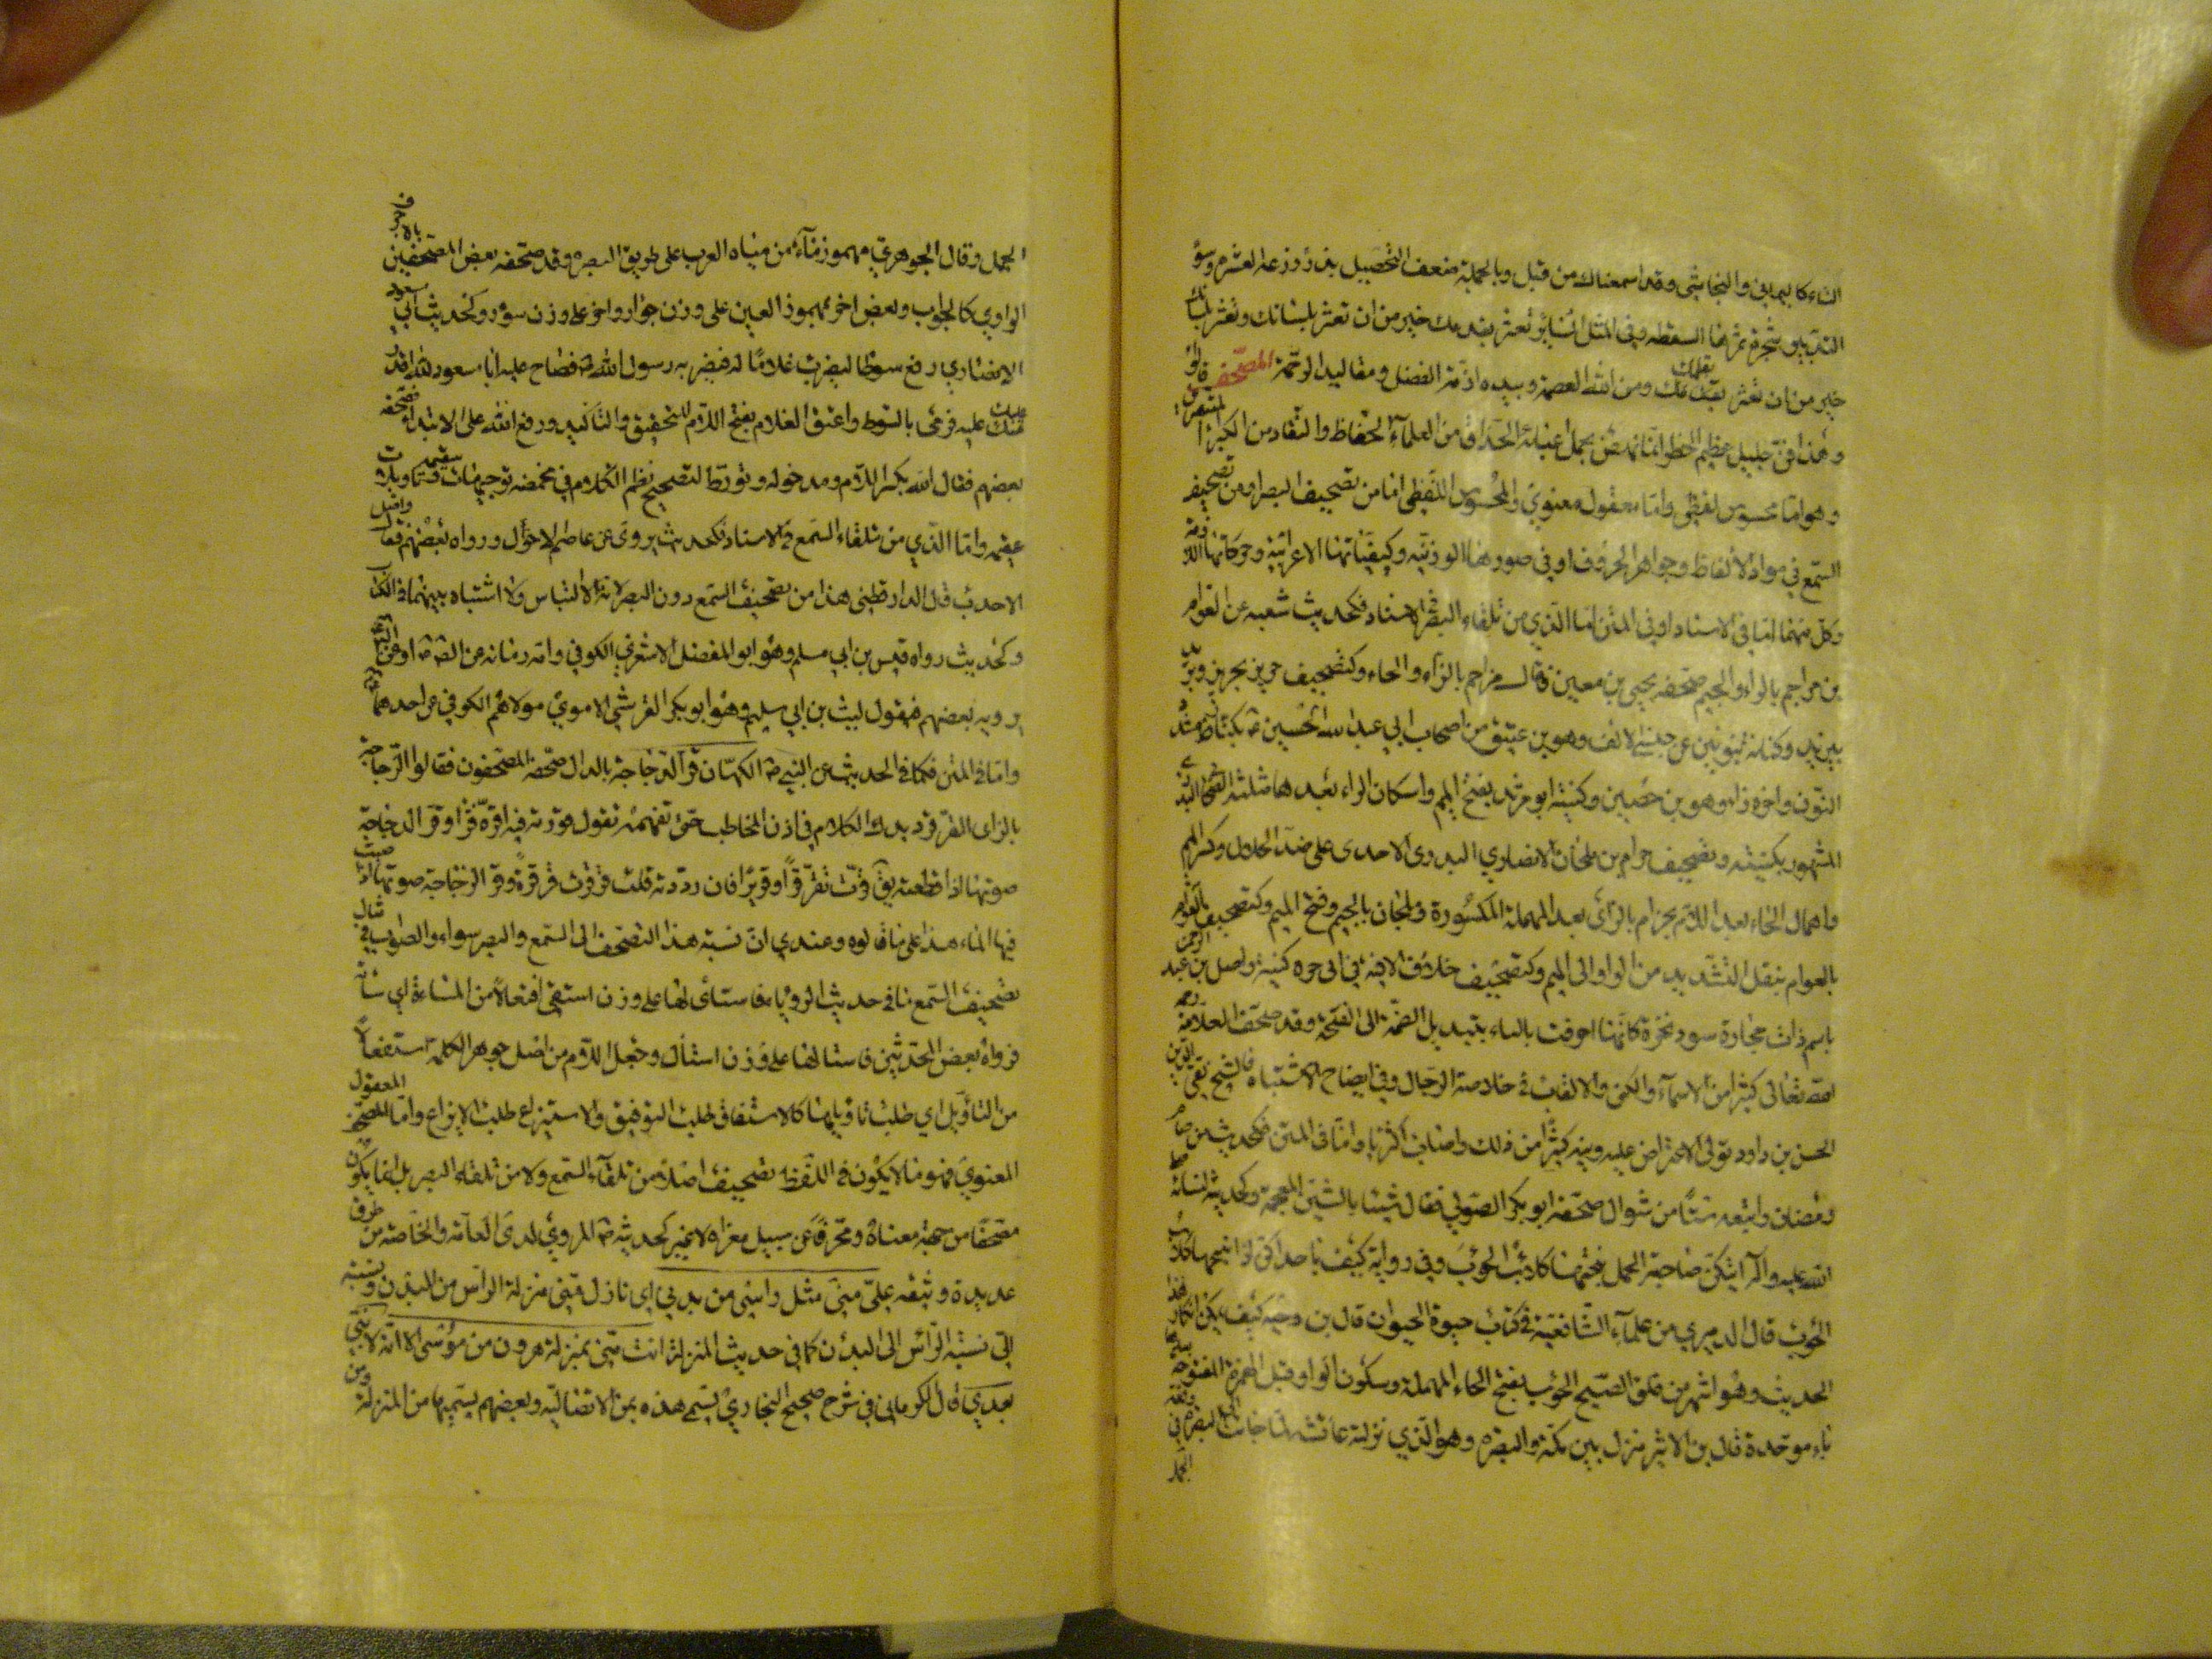 التاء كاليماني والنجاشي وقد اسمعناك من قبل وبالجملة ضعف التحصيل بذر زرعه العثرة وسوء
التدبير شجرة ثمرتها السقطه وفي المثل السائر تعثر بقدمك خير من ان تعثر بلسانك وتعثر بلسانك
خير من ان تعثر بقلمك ومن الله العصمة وبيده ازمة الفضل ومقاليد الرحمة المصحف قالوا
وهذا فن جليل عظيم الخطر انما ينهض بحمل اعبائه الحذاق من العلماء الحفاظ والنقاد من الكبراء المتبحرين
وهو اما محسوس لفظي واما معقول معنوي والمحسوس اللفظي اما من تصحيف البصر او من تصحيف
السمع في مواد الالفاظ وجواهر الحروف او في صورها الوزنية وكيفياتها الاعرابية وحركاتها اللازمة
وكل منهما اما في الاسناد او في المتن اما الذي من تلقاء البصر في الاسناد فكحديث شعبه عن العوام
بن مراجم بالراء والجيم صحفه يحيى بن معين فقال مزاحم بالزاء والحاء وكتصحيف حريز بجرير وبريد
بيزيد وكناز بنونين عن جنبتي الالف وهو بن عتيق من اصحاب ابي عبد الله الحسين ع بكناز
النون واخره زاء وهو بن حصين وكنيته ابو مرثد بفتح الميم واسكان الراء بعدها مثلثه
المشهور بكنيته وتصحيف حرام بن ملحان الانصاري البدري الاحدي على ضد الحلال وكسر الميم
واهمال الحاء بعد اللام بحزام بالزاي بعد المهملة المكسورة وملجان بالجيم وفتح الميم وكتصحيف العوام
بالعوام بنقل التشديد من الواو الى الميم وكتصحيف خلاف الافيه في ابي حره كنية واصل بن عبد الرحمن
باسم ذات حجارة سود نخرة كانها احرقت بالنار بتبديل الضمة الى الفتحة وقد صحف العلامة رحمه
الله تعالى كثيرا من الاسماء والكنى والالقاب في خلاصة الرجال وفي ايضاح الاشتباه فالشيخ تقي الدين
الحسن بن داود تولى الاعتراض عليه وبينه كثيرا من ذلك واصاب اكثريا واما في المتن فكحديث من صام
رمضان واتبعه ستا من شوال صحفه ابو بكر الصولي فقال شيئا بالشين المعجمة وكحديثه لنسائه
الله عليه واله ايتكن صاحبة الجمل تنبحها كلاب الحوءب وفي رواية كيف باحداكن اذا نبحتها كلاب
الحوءب قال الدميري من علماء الشافعية في كتاب حيوة الحيوان قال بن دحيه كيف يمكن انكار هذا
الحديث وهو اشهر من فلق الصبح الحوءب بفتح الحاء المهملة وسكون الواو قبل الهمزة المفتوحة
باء موحدة قال بن الاثير منزل بين مكة والبصره وهو الذي نزلته عائشة لما جاءت الى البصره في وقعة
الجمل
الجمل وقال الجوهري مهموز ماء من مياه العرب على طريق البصره وقد صحفه بعض المصحفين بالاجوف
الواوي كالجواب وبعض اخر بمهموز العين على وزن جؤار واخر على وزن سؤر وكحديث ابي مسعود
الانصاري رفع سوطا ليضرب غلاما له فبصر به رسول الله ص فصاح عليه ابا مسعود لله اقدر
عليك منك عليه فرمى بالسوط واعتق الغلام بفتح اللام للتحقيق والتاكيد ورفع الله على الابتداء فصحفه
بعضهم فقال الله بكسر اللام ومد حوله وتورط لتصحيح نظم الكلام في مخمصة توجيهات سقيمه وتاويلات
عقيمه واما الذي من تلقاء السمع في الاسناد فكحديث يروى عن عاصم الاحول ورواه بعضهم فقال واصل
الاحدب قال الدار قطني هذا من تصحيف السمع دون البصر لانه لا التباس ولا اشتباه بينهما في الكتابة
وكحديث رواه قيس بن ابي مسلم وهو ابو المفضل الاشعري الكوفي
يرويه بعضهم فيقول ليث بن ابي سليم وهو ابو بكر القرشي الاموي مولاهم الكوفي عن احدهما ع
واما في المتن فكما في الحديث عن النبي ص الكهان قر الدجاجة بالدال صحفه المصحفون فقالوا الزجاجة
بالزاى القر ترديدك الكلام في اذن المخاطب حتى تفهمه تقول قررته فيه اقره قرا وقر الدجاجة
صوتها اذا قطعته يق قرت تقر قرا وقريرا فان رددته قلت قرقرت قرقرة وقر الزجاجة صوتها اذا صبت
فيها الماء هذا على ما قالوه وعندي ان نسبة هذا التصحيف الى السمع والبصر سواء والصواب في مثال
تصحيف السمع ما في حديث الرويا فاستاى لها على وزن استقى افتعالا من المساءة اي ساءته
فرواه بعض المحدثين فاستالها على وزن استأل وجعل اللام من اصل جوهر الكلمة استفعالا
من التاول اي طلب تاويلها كالاستيفاق طلب التوفيق والاستيزاع طلب الايزاع واما المصحف المعقول
المعنوي فهو ما لا يكون في اللفظ تصحيف اصلا من تلقاء السمع ولا من تلقاء البصر بل انما يكون
مصحفا من جهة معناه ومحرفا عن سبيل مغزاه لا غير كحديثه ص المروي لدى العامة والخاصة من طرق
عديدة وثيقه علي مني مثل راسي من بدني اي نازل مني منزلة الراس من البدن ونسبته
الي نسبة الراس الى البدن كما في حديث المنزلة انت مني بمنزلة هرون من موسى الا انه لا نبي
بعدي قال الكرماني في شرح صحيح البخاري يسمى هذه بمن الاتصالية وبعضهم يسميها من المنزلة ومن